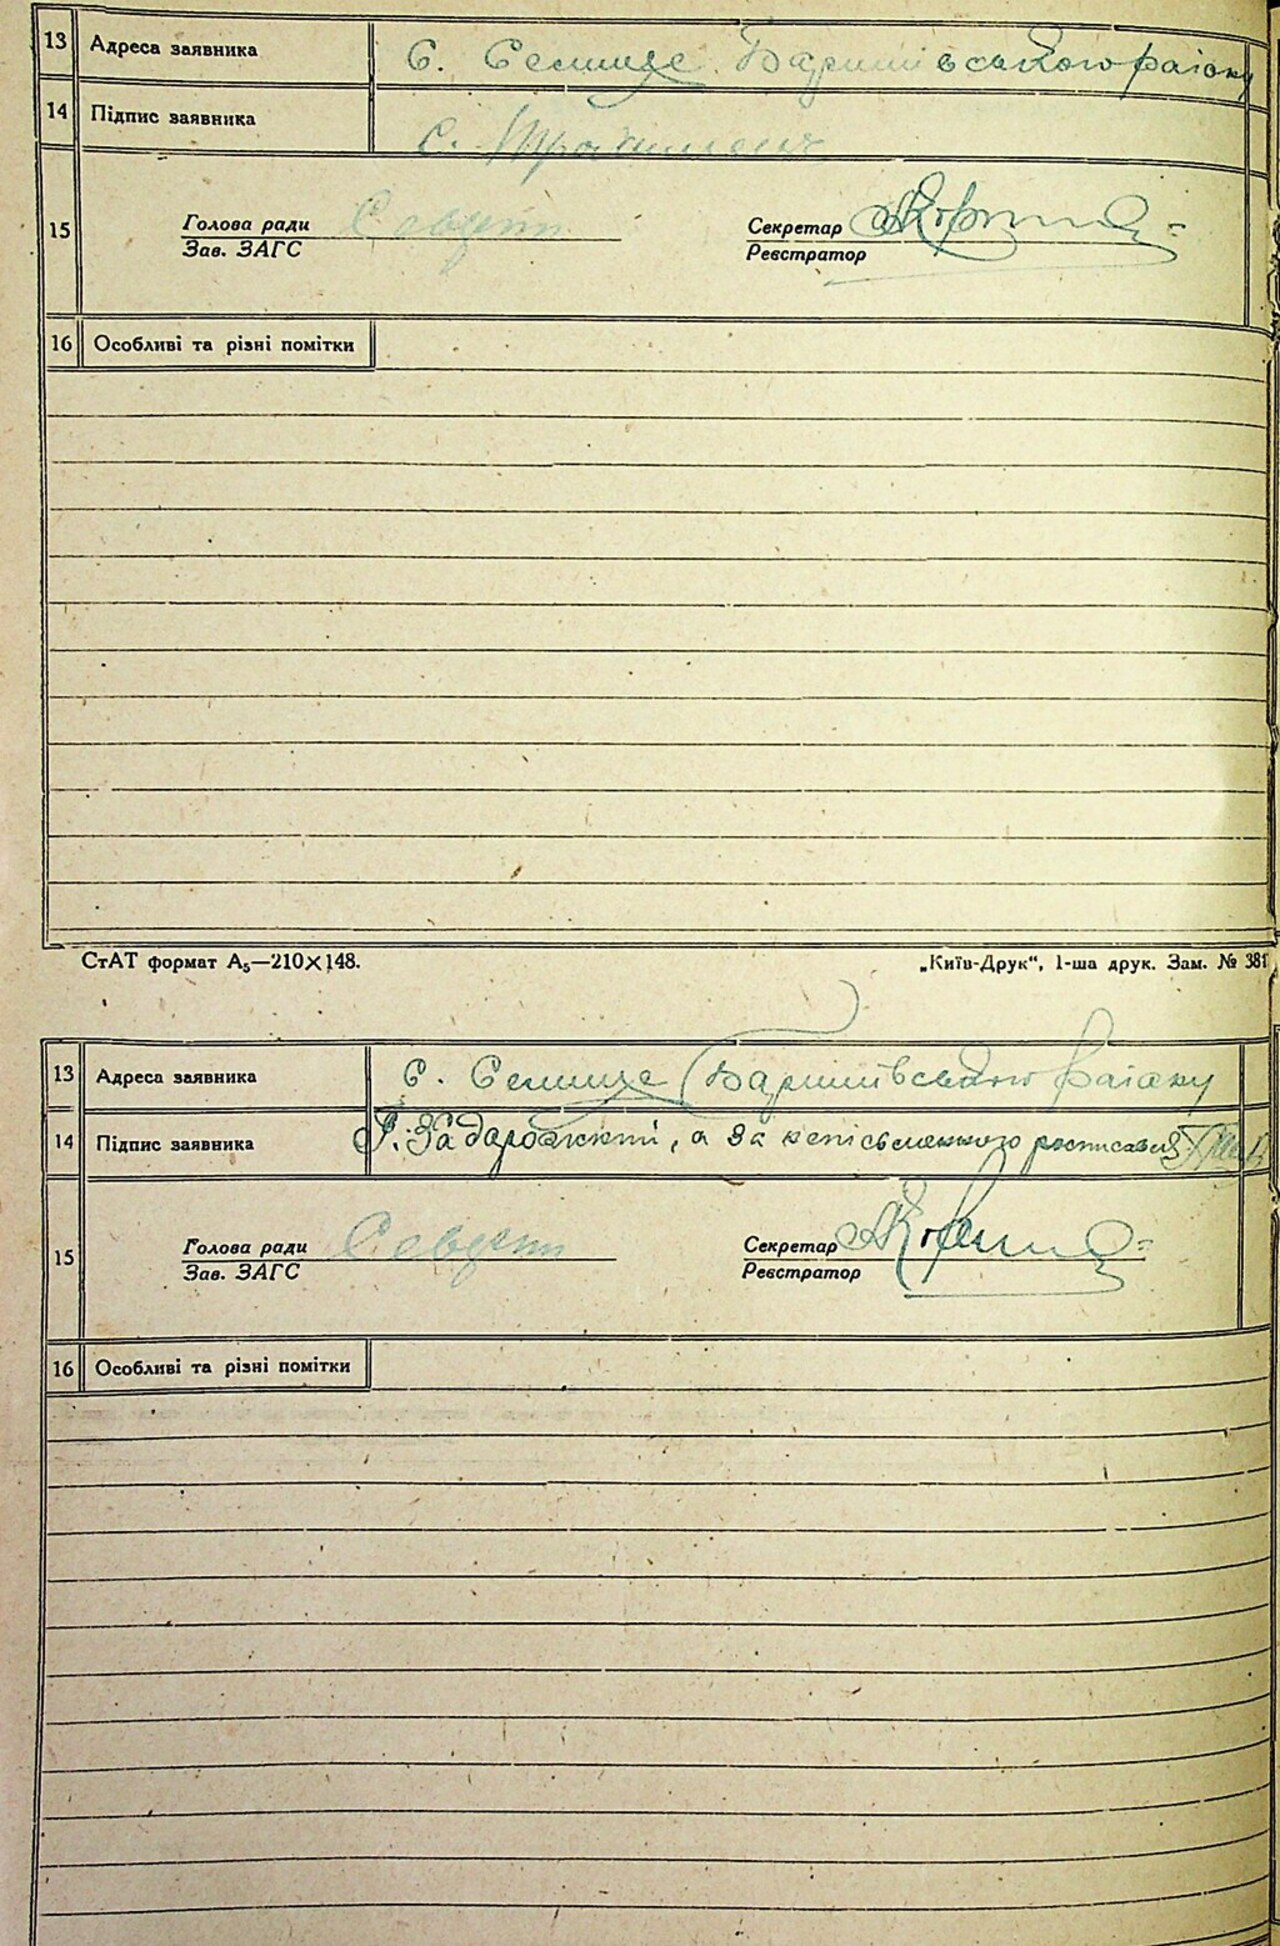 13 Адреса заявника с. Селище Баришівського району
14 Підпис заявника С.
15 Голова ради Секретар
Зав. ЗАГС Реєстратор
16 Особливі та різні помітки
СтАТ формат А₅—210×148. „Київ-Друк“, 1-ша друк. Зам. № 381
13 Адреса заявника с. Селище Баришівського району
14 Підпис заявника Задорожний, а за неписьменного росписався
15 Голова ради Секретар
Зав. ЗАГС Реєстратор
16 Особливі та різні помітки